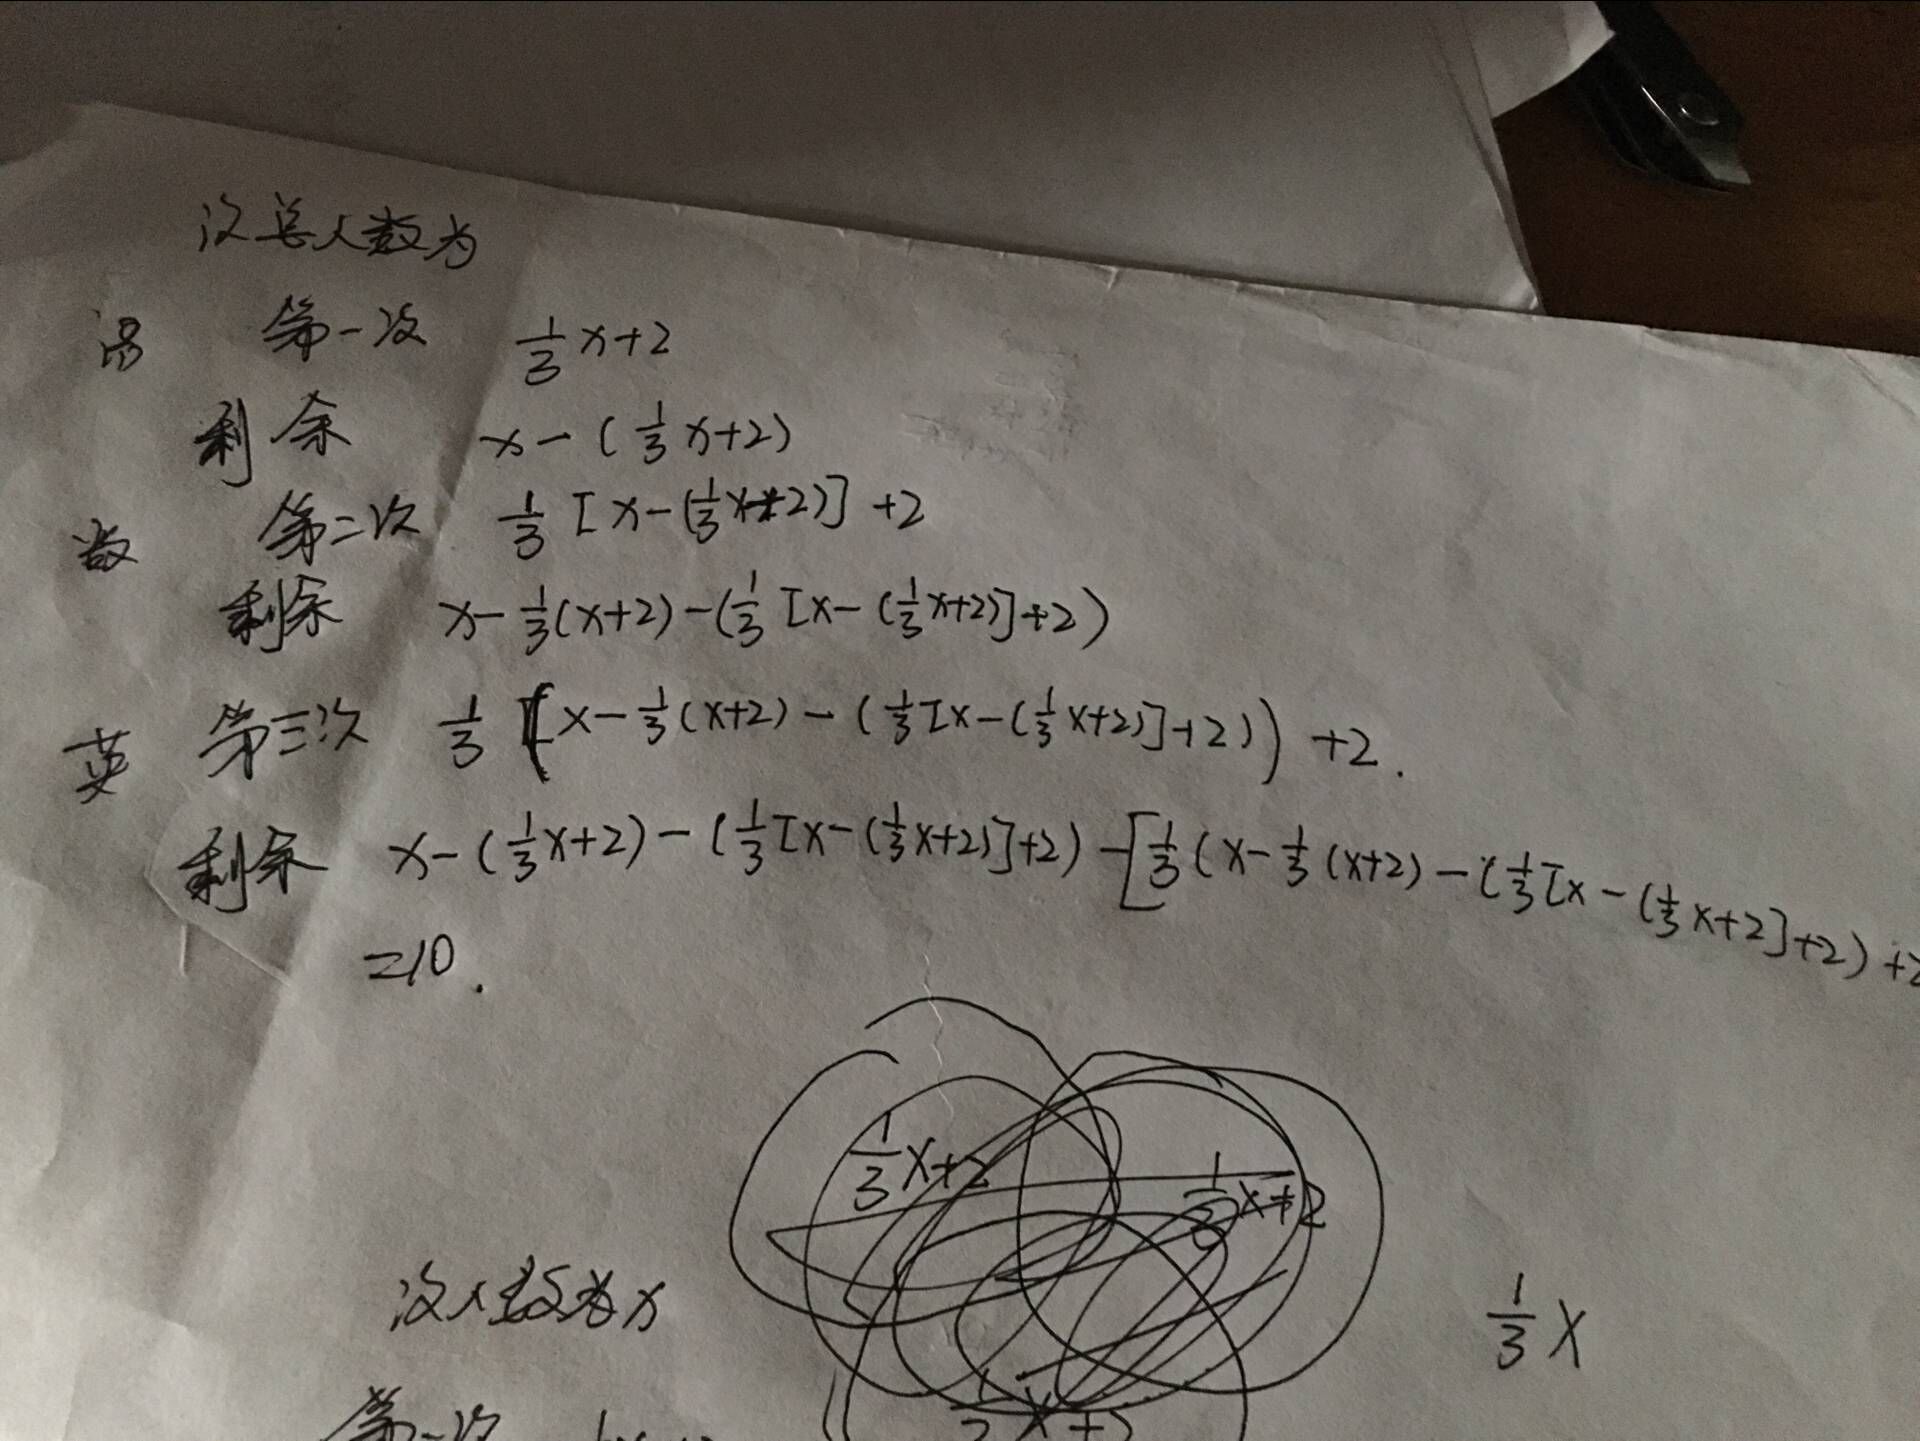 设总人数为
语 第一次 1/3 x+2
剩余 x-(1/3 x+2)
数 第二次 1/3 [x-(1/3 x+2)]+2
剩余 x-1/3(x+2)-(1/3[x-(1/3 x+2)]+2)
英 第三次 1/3 (x-1/3(x+2)-(1/3[x-(1/3 x+2)]+2))+2.
剩余 x-(1/3 x+2)-(1/3[x-(1/3 x+2)]+2)-[1/3(x-1/3(x+2)-(1/3[x-(1/3 x+2]+2)+2
=10.
1/3 x+2
x+2
设人数为x
1/3 x
第一次